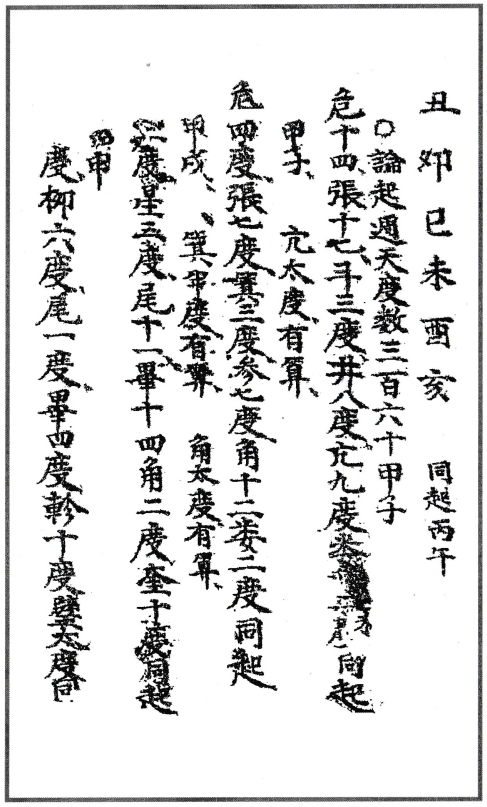 丑 卯 巳 未 酉 亥 同起丙午
○論起通天度数三百六十甲子
危十四張十七斗三度井八度亢九度 同起
甲子 亢太度有算
危四度張七度翼三度参七度角十二娄二度同起
甲戌 箕半度有算 角太度有算
度星五度尾十一畢十四角二度奎十度同起
甲申
度柳六度尾一度畢四度軫十度壁太度同